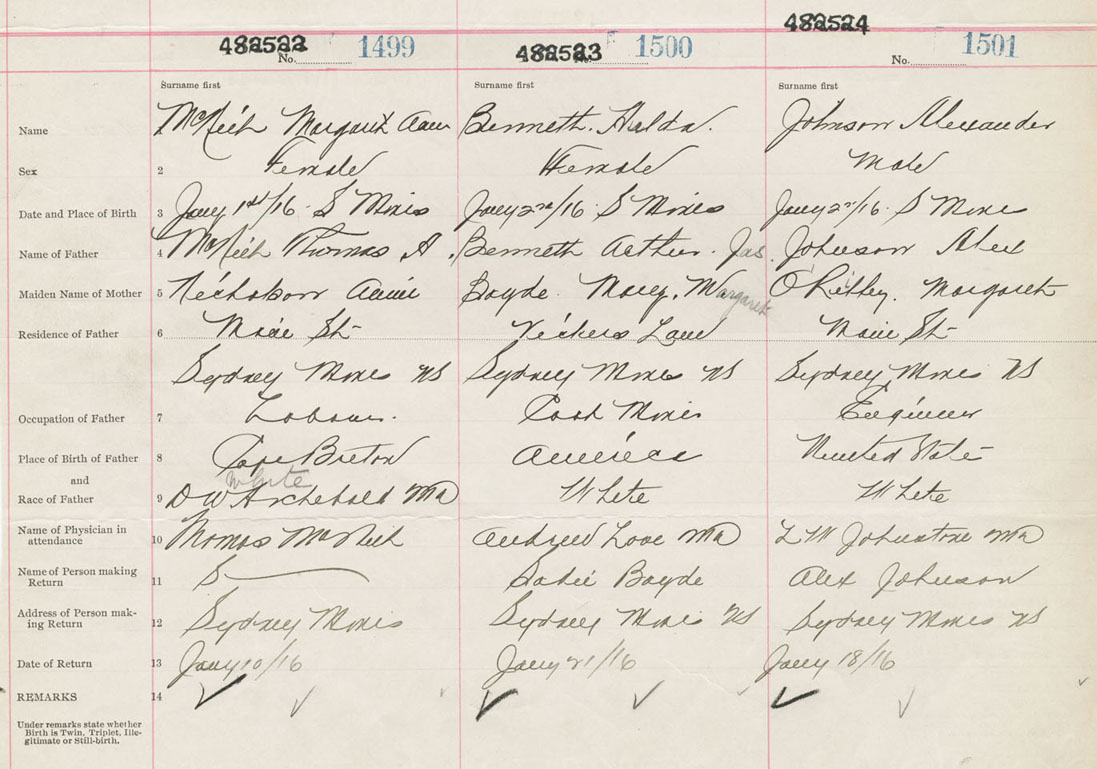 482522 1499 482523 1500 482524 1501
No. No. No.
Surname first Surname first Surname first
Name McNeil Margaret Ann Bennett. Hilda. Johnson Alexander
Sex 2 Female Female Male
Date and Place of Birth 3 Jany 1st/16. S Mines Jany 2nd/16 S Mines Jany 2nd/16. S Mines
Name of Father 4 McNeil Thomas A. Bennett Arthur. Jas. Johnson Alex
Maiden Name of Mother 5 Nicholson Annie Boyde Mary. Margaret Margaret
Residence of Father 6 Main St Vickers Lane Main St
Sydney Mines NS Sydney Mines NS Sydney Mines NS
Occupation of Father 7 Labour. Coal Miner Engineer
Place of Birth of Father 8 Cape Breton America United States
and White
Race of Father 9 D W Archibald MD White White
Name of Physician in
attendance 10 Thomas McNeil Andrew Love MD L W Johnstone MD
Name of Person making
Return 11 S Sadie Boyde Alex Johnson
Address of Person mak-
ing Return 12 Sydney Mines Sydney Mines NS Sydney Mines NS
Date of Return 13 Jany 10/16 Jany 21/16 Jany 18/16
REMARKS 14
Under remarks state whether
Birth is Twin, Triplet, Ille-
gitimate or Still-birth.